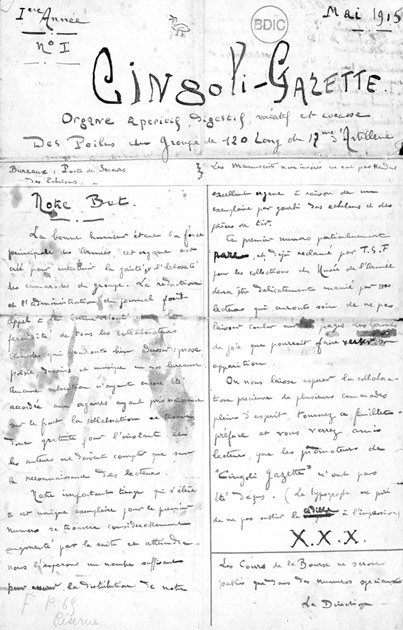 Ière Année
No I
BDIC
Mai 1915
CINGOLI-GAZETTE.
Organe apéritif, digestif, récréatif et cocasse
Des Poilus du Groupe de 120 Long du Artillerie
Bureaux : Poste de Secours
des Échelons.
Les Manuscrits non insérés ne sont pas rendus
Notre But.
La bonne humeur étant la force
principale des Armées, cet organe est
créé pour entretenir la gaîté
les camarades du groupe. La rédaction
et l'administration du journal font
appel à
de tous les collaborateurs
qui voudront bien prose
poésie dessins et musique
Aucune n'ayant encore été
accordée aux organes ayant pris naissance
sur le front la collaboration se trouve
donc gratuite pour l'instant et
les auteurs ne doivent compter que sur
la reconnaissance des lecteurs.
Notre important tirage qui s'élève
à un unique exemplaire pour le premier
numéro se trouvera considérablement
augmenté par la suite et
nous espérons un nombre suffisant
pour assurer la distribution de notre
excellent organe à raison de un
exemplaire par des échelons et des
pièces de tir.
Ce premier numéro particulièrement
rare et déjà réclamé par T.S.F
pour les collections du Musée de l'Armée
devra être délicatement manié par nos
lecteurs qui auront soin de ne pas
laisser couler sur les
de joie que pourrait faire verser son
apparition.
On nous laisse espérer la collabora-
tion précieuse de plusieurs camarades
pleins d'esprit. Tournez ce feuillet-
préface et vous verrez amis
lecteurs que les promoteurs de
"Cingoli Gazette" n'ont pas
été déçus. (Le typographe est prié
de ne pas oublier la cédille à l'impression)
X.X.X.
Les Cours de la Bourse ne seront
publiés que dans des numéros spéciaux
La Direction
F. P. 69
Réserve